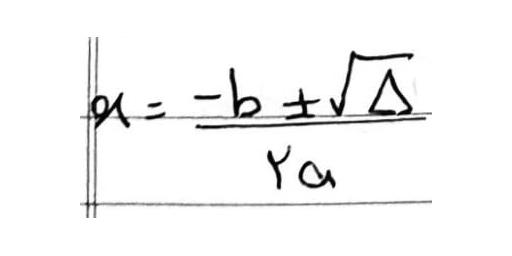 x = (-b ± √Δ) / ۲a